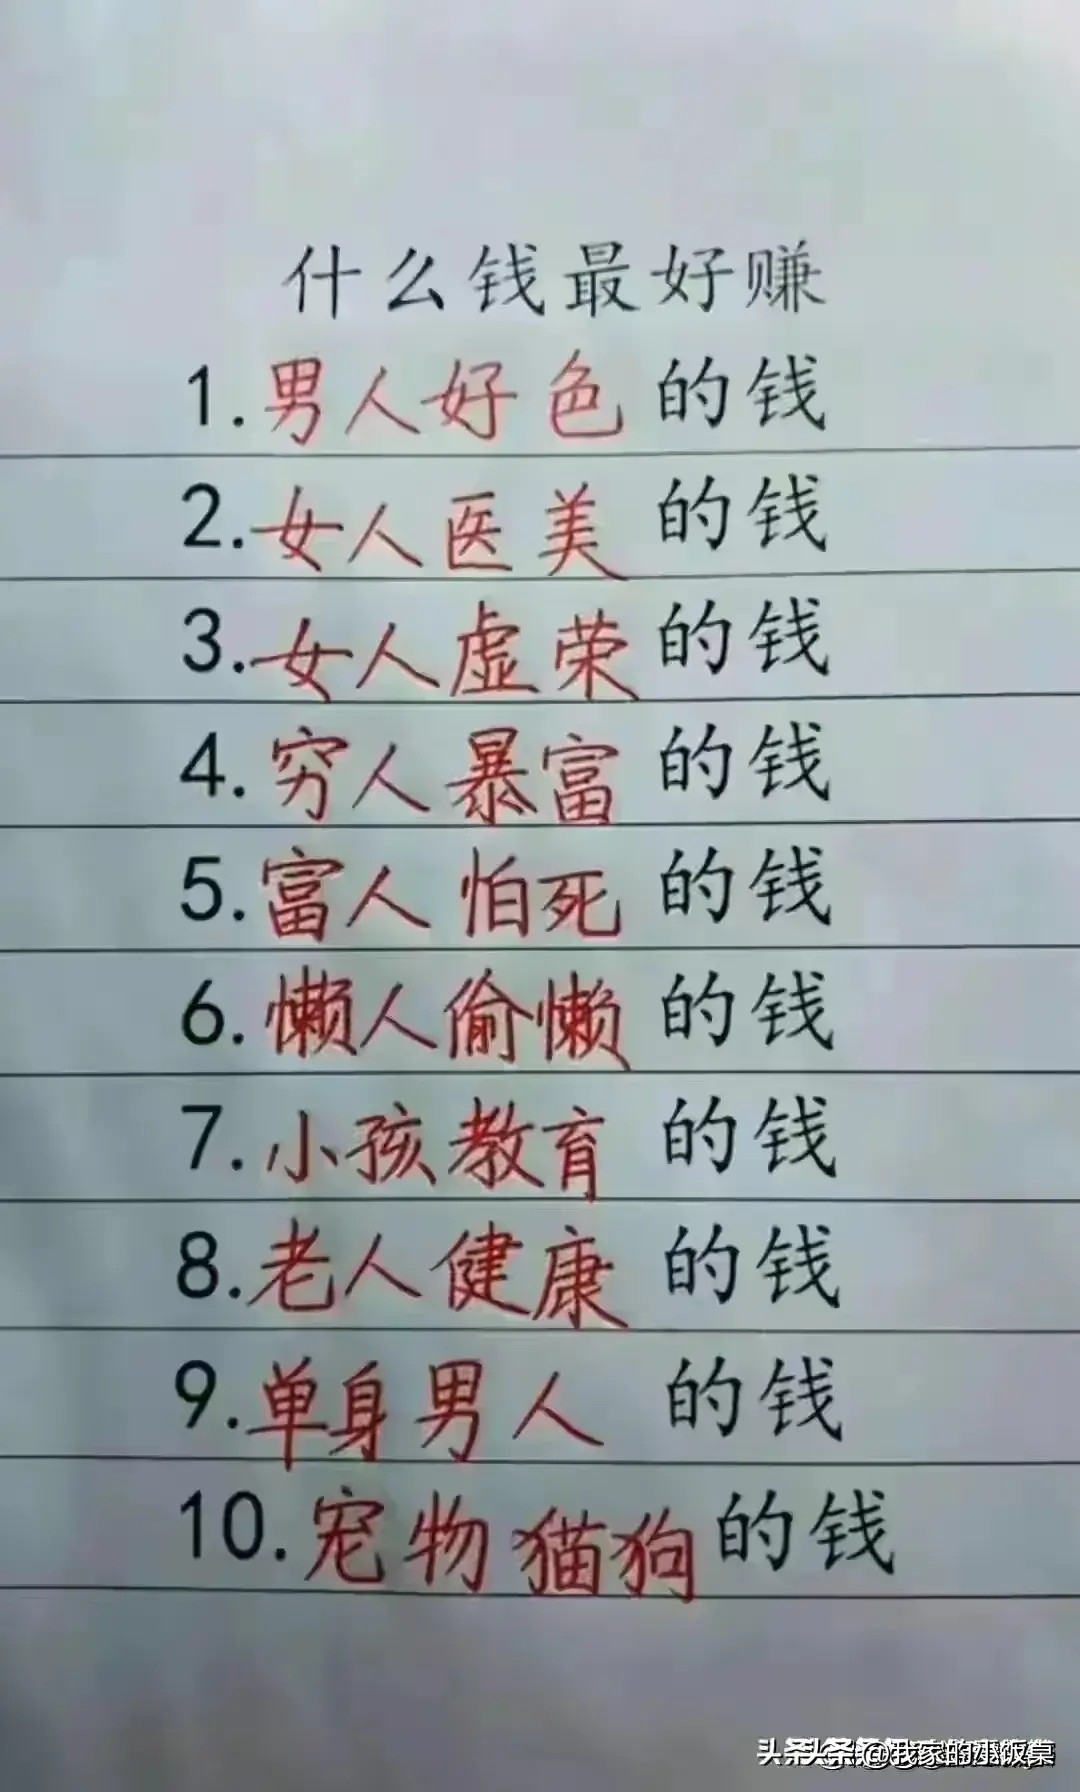 什么钱最好赚
1.男人好色的钱
2.女人医美的钱
3.女人虚荣的钱
4.穷人暴富的钱
5.富人怕死的钱
6.懒人偷懒的钱
7.小孩教育的钱
8.老人健康的钱
9.单身男人的钱
10.宠物猫狗的钱
头条 @我家的小饭桌